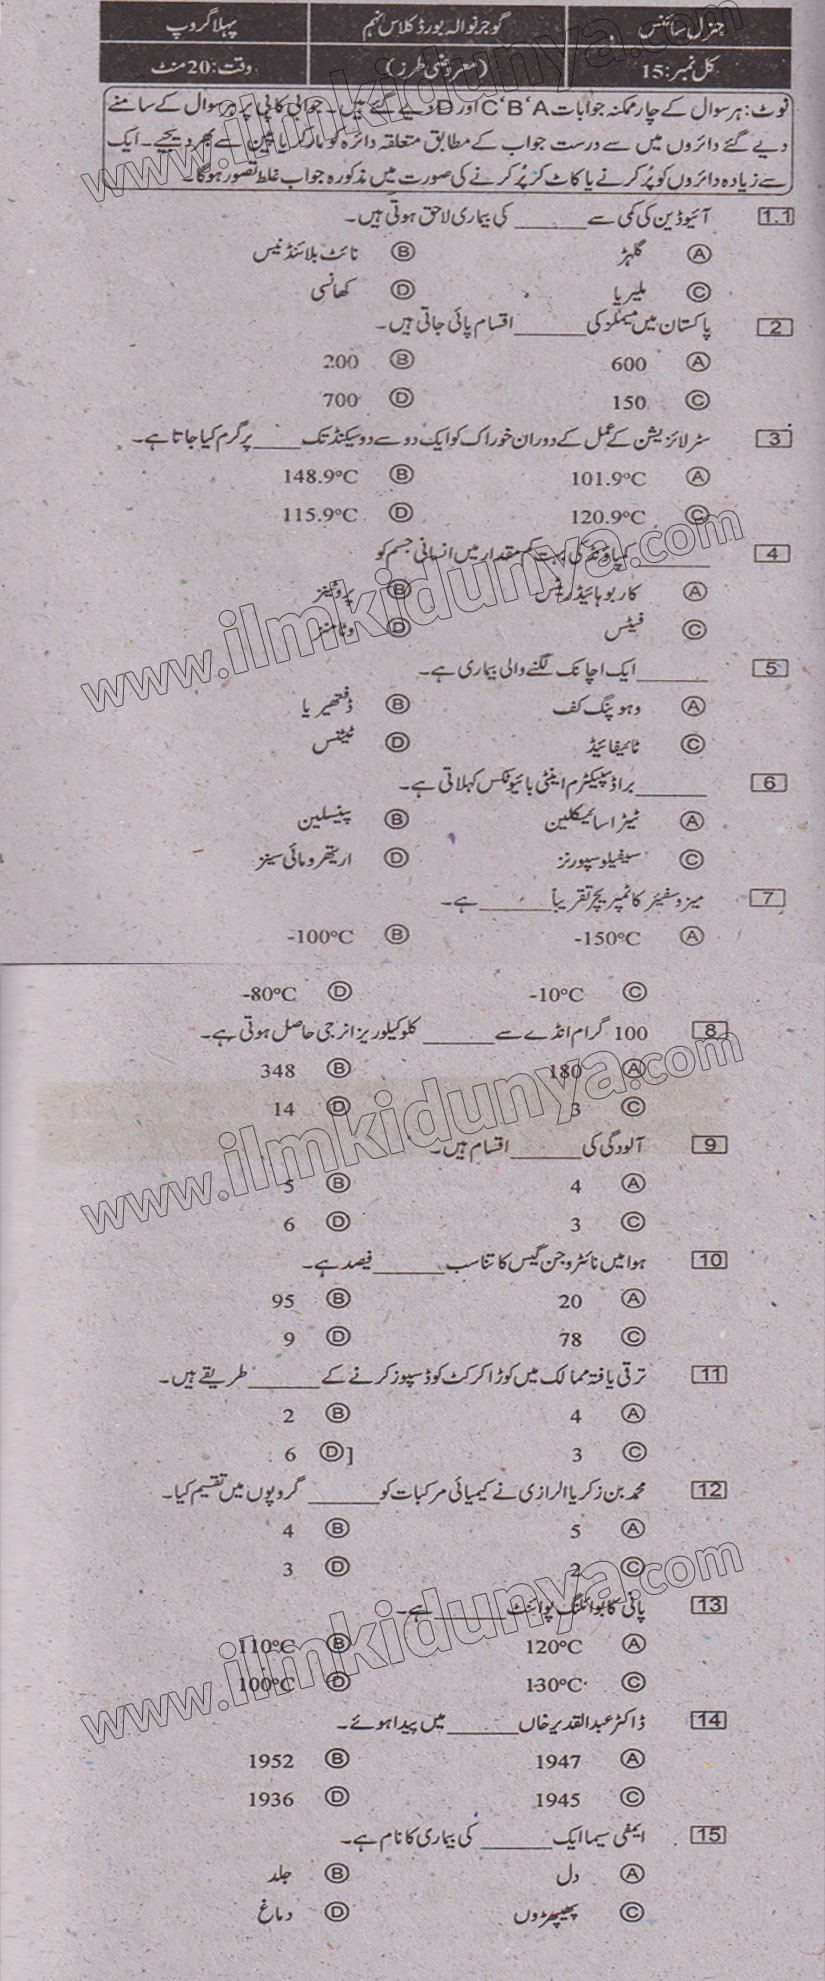 جنرل سائنس گوجرنوالہ بورڈ کلاس نہم پہلا گروپ
کل نمبر: 15 (معروضی طرز) وقت: 20 منٹ
نوٹ: ہر سوال کے چار ممکنہ جوابات C'B'A اور D دیے گئے ہیں۔ جوابی کاپی پر ہر سوال کے سامنے
دیے گئے دائروں میں سے درست جواب کے مطابق متعلقہ دائرہ کو مارکر یا پین سے بھر دیجیے۔ ایک
سے زیادہ دائروں کو پُر کرنے یا کاٹ کر پُر کرنے کی صورت میں مذکورہ جواب غلط تصور ہوگا۔
1.1 آئیوڈین کی کمی سے ______ کی بیماری لاحق ہوتی ہیں۔
A گلہڑ B نائٹ بلائنڈنیس
C ملیریا D کھانسی
2 پاکستان میں میملز کی ______ اقسام پائی جاتی ہیں۔
A 600 B 200
C 150 D 700
3 سٹرلائزیشن کے عمل کے دوران خوراک کو ایک دو سے دو سیکنڈ تک ____ پر گرم کیا جاتا ہے۔
A 101.9°C B 148.9°C
C 120.9°C D 115.9°C
4 ______ کمپاؤنڈ کی بہت کم مقدار میں انسانی جسم کو
A کاربوہائیڈریٹس B پروٹینز
C فیٹس D وٹامنز
5 ______ ایک اچانک لگنے والی بیماری ہے۔
A وہوپنگ کف B ڈفتھیریا
C ٹائیفائیڈ D ٹیٹنس
6 ______ براڈ سپیکٹرم اینٹی بائیوٹکس کہلاتی ہے۔
A ٹیٹراسائیکلین B پینسلین
C سیفیلوسپورنز D اریتھرومائی سینز
7 میزوسفیئر کا ٹمپریچر تقریباً ______ ہے۔
A -150°C B -100°C
C -10°C D -80°C
8 100 گرام انڈے سے ______ کلوکیلوریز انرجی حاصل ہوتی ہے۔
A 180 B 348
C 3 D 14
9 آلودگی کی ______ اقسام ہیں۔
A 4 B 5
C 3 D 6
10 ہوا میں نائٹروجن گیس کا تناسب ______ فیصد ہے۔
A 20 B 95
C 78 D 9
11 ترقی یافتہ ممالک میں کوڑا کرکٹ کو ڈسپوز کرنے کے ______ طریقے ہیں۔
A 4 B 2
C 3 [D 6
12 محمد بن زکریا الرازی نے کیمیائی مرکبات کو ______ گروپوں میں تقسیم کیا۔
A 5 B 4
C 2 D 3
13 پانی کا بوائلنگ پوائنٹ ______ ہے۔
A 120°C B 110°C
C 130°C D 100°C
14 ڈاکٹر عبدالقدیر خاں ______ میں پیدا ہوئے۔
A 1947 B 1952
C 1945 D 1936
15 ایمفی سیما ایک ______ کی بیماری کا نام ہے۔
A دل B جلد
C پھیپھڑوں D دماغ
www.ilmkidunya.com
www.ilmkidunya.com
www.ilmkidunya.com
www.ilmkidunya.com